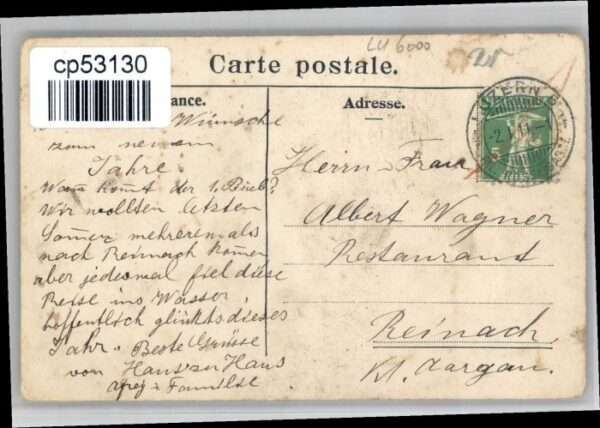 cp53130
LU 6000
Carte postale.
ance.
Adresse.
LUZERN
-2.I.11.-
5
Wünsche
zum neuen
Jahre.
Wan komt der 1. Büeb?
Wir wollten letzten
Somer mehreremals
nach Reinach komen
aber jedesmal fiel diese
Reise ins Wasser,
hoffentlich glükts dieses
Jahr. Beste Grüsse
von Hans zu Haus
& Familie
Herrn & Frau
Albert Wagner
Restaurant
Reinach
Kt. Aargau.